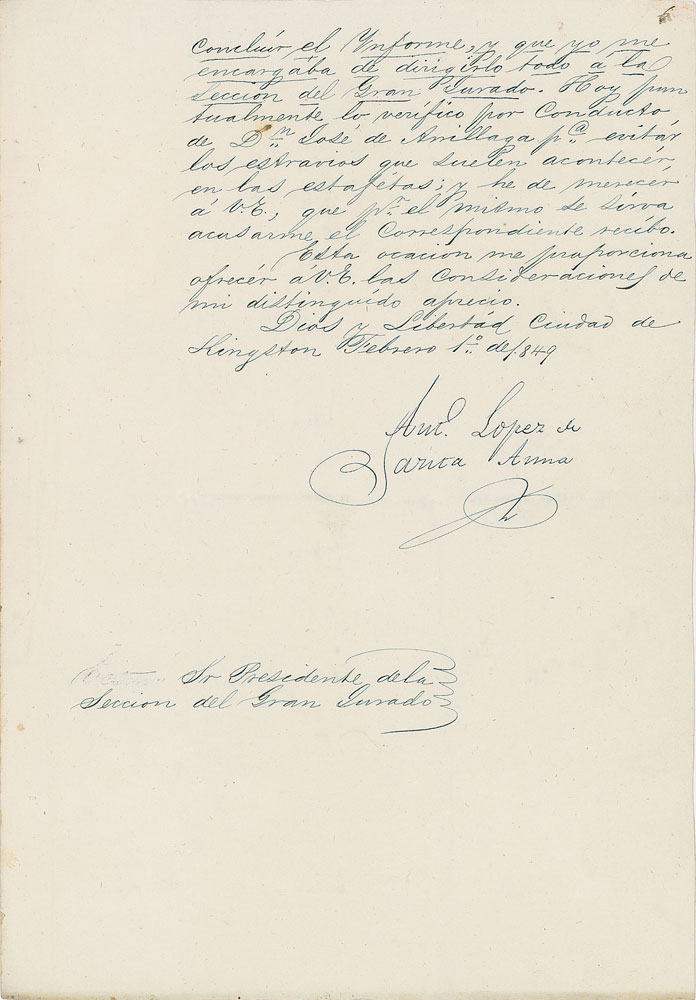 concluír el Ynforme, y que yo me
encargába de dirigirlo todo a la
Seccion del Gran Jurado. Hoy pun
tualmente lo verífico por Conducto
de D.n José de Arrillaga p.a evitár
los estravios que suelen acontecér
en las estafétas; y he de merecér
á V.E., que p.r el mismo se sirva
acusarme el Correspondiente recibo.
Esta ocacion me proporciona
ofrecér á V.E. las Consideraciones de
mi distinguído aprecio.
Dios y Libertád Ciudad de
Kingston Febrero 1.o de 1.849
Ant. Lopez de
Santa Anna
Sr Presidente de la
Seccion del Gran Jurado